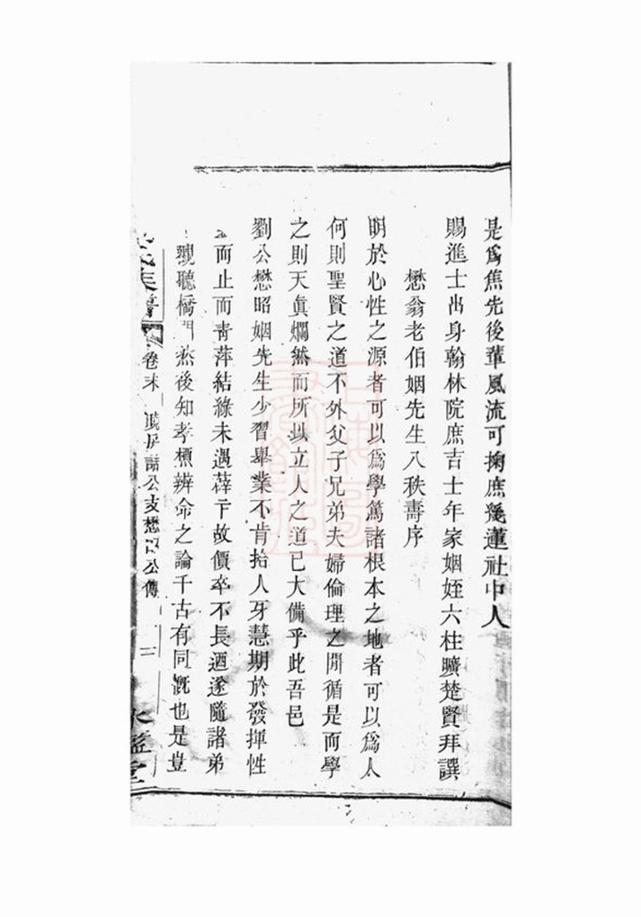 是爲焦先後輩風流可掬庶幾蓮社中人
賜進士出身翰林院庶吉士年家姻姪六柱曠楚賢拜譔
懋翁老伯姻先生八秩壽序
明於心性之源者可以爲學篤諸根本之地者可以爲人
何則聖賢之道不外父子兄弟夫婦倫理之間循是而學
之則天眞爛然而所以立人之道已大備乎此吾邑
劉公懋昭姻先生少習舉業不肯拾人牙慧期於發揮性
而止而靑萍結綠未遇薛卞故價卒不長迺遂隨諸弟
觀聽橋門然後知孝標辨命之論千古有同慨也是豈
氏族譜
卷末
公支懋
公傳
三